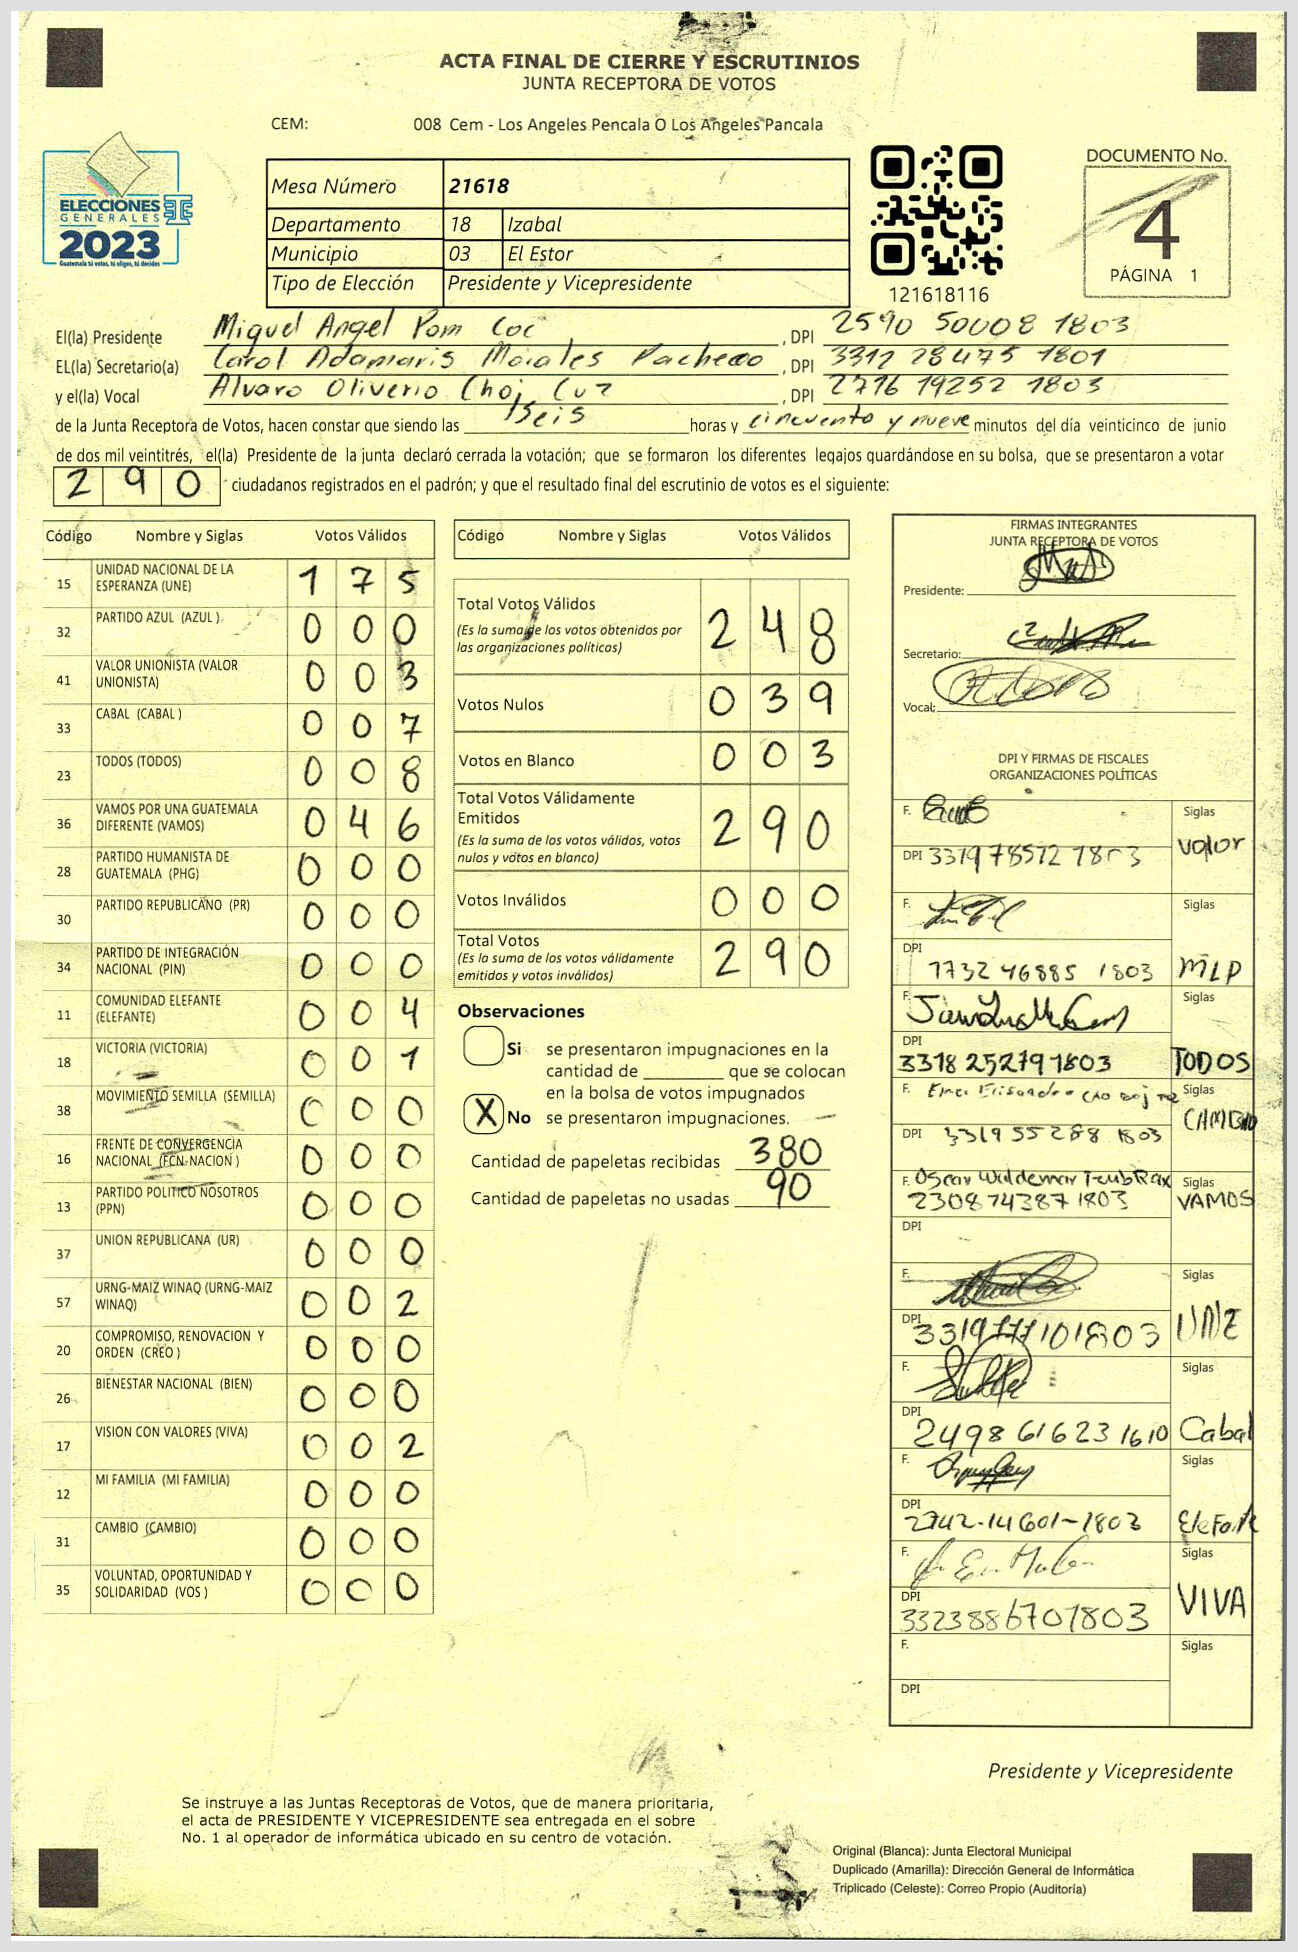 ACTA FINAL DE CIERRE Y ESCRUTINIOS
JUNTA RECEPTORA DE VOTOS
CEM: 008 Cem - Los Angeles Pencala O Los Angeles Pancala
ELECCIONES
GENERALES
2023
Guatemala tú votas, tú eliges, tú decides
Mesa Número 21618
Departamento 18 Izabal
Municipio 03 El Estor
Tipo de Elección Presidente y Vicepresidente
121618116
DOCUMENTO No.
4
PÁGINA 1
El(la) Presidente Miguel Angel Pom Coc, DPI 2590 50008 1803
EL(la) Secretario(a) Carol Adamaris Morales Pacheco, DPI 3312 28475 1801
y el(la) Vocal Alvaro Oliverio Choj Cuz, DPI 2716 19252 1803
de la Junta Receptora de Votos, hacen constar que siendo las horas y cincuenta y nueve minutos del día veinticinco de junio
de dos mil veintitrés, el(la) Presidente de la junta declaró cerrada la votación; que se formaron los diferentes legajos guardándose en su bolsa, que se presentaron a votar
290 ciudadanos registrados en el padrón; y que el resultado final del escrutinio de votos es el siguiente:
Código Nombre y Siglas Votos Válidos
15 UNIDAD NACIONAL DE LA ESPERANZA (UNE) 1 7 5
32 PARTIDO AZUL (AZUL ) 0 0 0
41 VALOR UNIONISTA (VALOR UNIONISTA) 0 0 3
33 CABAL (CABAL ) 0 0 7
23 TODOS (TODOS) 0 0 8
36 VAMOS POR UNA GUATEMALA DIFERENTE (VAMOS) 0 4 6
28 PARTIDO HUMANISTA DE GUATEMALA (PHG) 0 0 0
30 PARTIDO REPUBLICANO (PR) 0 0 0
34 PARTIDO DE INTEGRACIÓN NACIONAL (PIN) 0 0 0
11 COMUNIDAD ELEFANTE (ELEFANTE) 0 0 4
18 VICTORIA (VICTORIA) 0 0 1
38 MOVIMIENTO SEMILLA (SEMILLA) 0 0 0
16 FRENTE DE CONVERGENCIA NACIONAL (FCN-NACION ) 0 0 0
13 PARTIDO POLITICO NOSOTROS (PPN) 0 0 0
37 UNION REPUBLICANA (UR) 0 0 0
57 URNG-MAIZ WINAQ (URNG-MAIZ WINAQ) 0 0 2
20 COMPROMISO, RENOVACION Y ORDEN (CREO ) 0 0 0
26 BIENESTAR NACIONAL (BIEN) 0 0 0
17 VISION CON VALORES (VIVA) 0 0 2
12 MI FAMILIA (MI FAMILIA) 0 0 0
31 CAMBIO (CAMBIO) 0 0 0
35 VOLUNTAD, OPORTUNIDAD Y SOLIDARIDAD (VOS ) 0 0 0
Código Nombre y Siglas Votos Válidos
Total Votos Válidos 2 4 8
(Es la suma de los votos obtenidos por
las organizaciones políticas)
Votos Nulos 0 3 9
Votos en Blanco 0 0 3
Total Votos Válidamente
Emitidos 2 9 0
(Es la suma de los votos válidos, votos
nulos y votos en blanco)
Votos Inválidos 0 0 0
Total Votos 2 9 0
(Es la suma de los votos válidamente
emitidos y votos inválidos)
Observaciones
Si se presentaron impugnaciones en la
cantidad de ________ que se colocan
en la bolsa de votos impugnados
X No se presentaron impugnaciones.
Cantidad de papeletas recibidas 380
Cantidad de papeletas no usadas 90
FIRMAS INTEGRANTES
JUNTA RECEPTORA DE VOTOS
Presidente:
Secretario:
Vocal:
DPI Y FIRMAS DE FISCALES
ORGANIZACIONES POLÍTICAS
F. Siglas
DPI 3319 78512 1803 Valor
F. Siglas
DPI 1732 46885 1803 MLP
F. Siglas
DPI 3318 25279 1803 TODOS
F. Siglas
DPI 3319 55288 1803 CAMBIO
F. Oscar Waldemar Siglas
2308 74387 1803 VAMOS
DPI
F. Siglas
DPI 3319777101803 UNE
F. Siglas
DPI 2498 61623 1610 Cabal
F. Siglas
DPI 2742-14601-1803 Elefante
F. Siglas
DPI 3323886701803 VIVA
F. Siglas
DPI
Presidente y Vicepresidente
Se instruye a las Juntas Receptoras de Votos, que de manera prioritaria,
el acta de PRESIDENTE Y VICEPRESIDENTE sea entregada en el sobre
No. 1 al operador de informática ubicado en su centro de votación.
Original (Blanca): Junta Electoral Municipal
Duplicado (Amarilla): Dirección General de Informática
Triplicado (Celeste): Correo Propio (Auditoría)